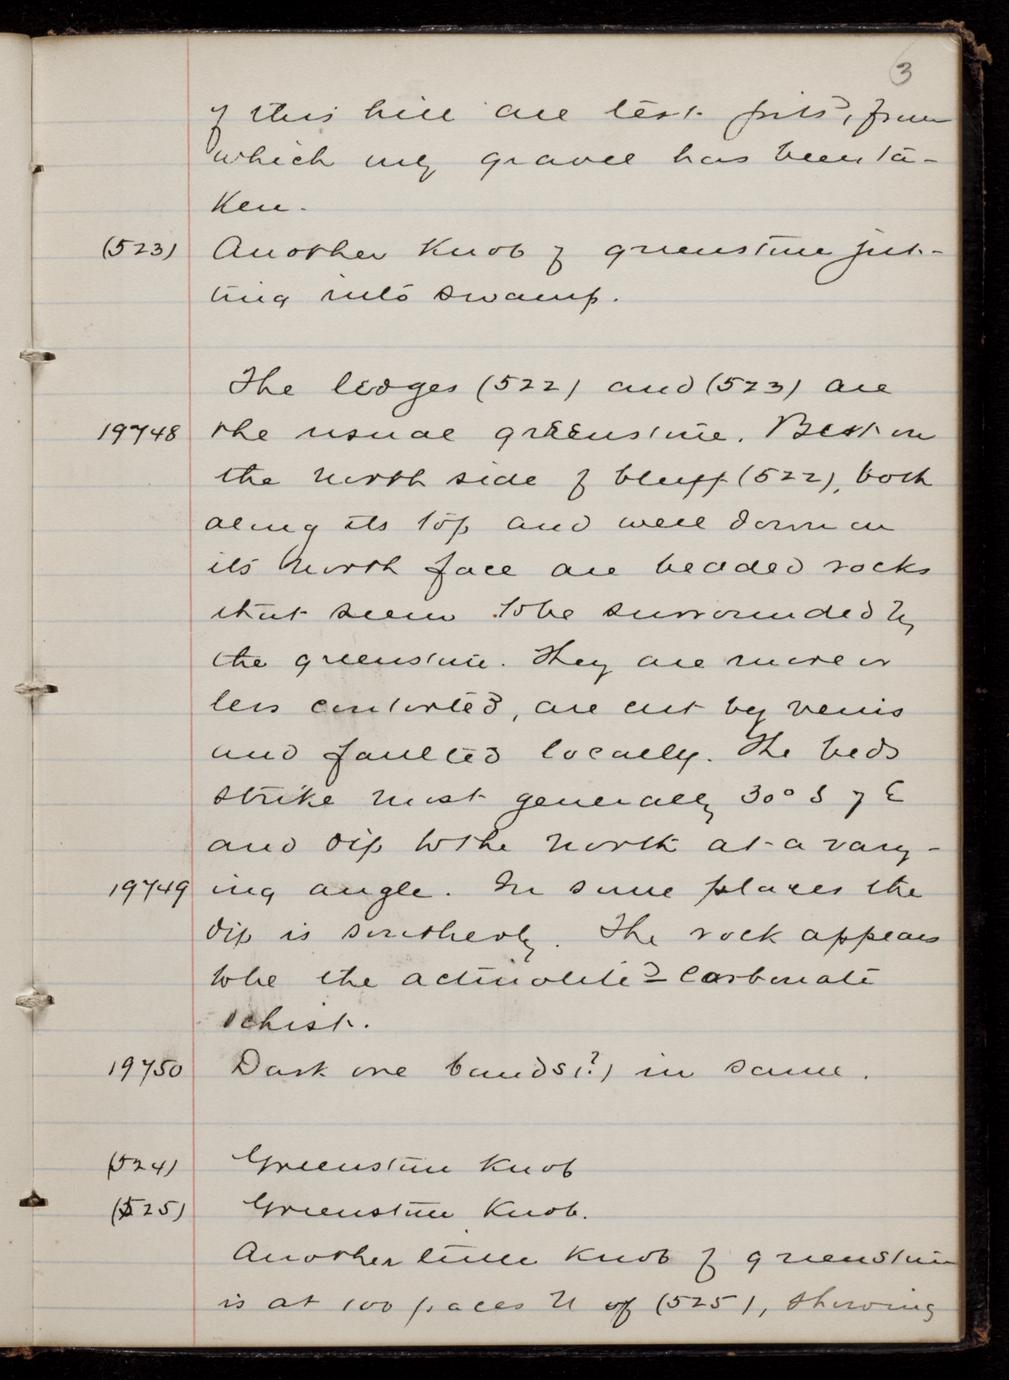 3
of this hill are test pits, from
which only gravel has been ta-
ken.
(523) Another Knob of greenstone jut-
ting into swamp.
The ledges (522) and (523) are
19748 the usual greenstone. Best on
the north side of bluff (522), both
along its top and well down on
its north face are beaded rocks
that seem to be surrounded by
the greenstone. They are more or
less contorted, are cut by veins
and faulted locally. The beds
strike most generally 30° S of E
and dip to the north at a vary-
19749 ing angle. In some places the
dip is southerly. The rock appears
to be the actinolite?-carbonate
schist.
19750 Dark ore bands(?) in same.
(524) Greenstone Knob
(525) Greenstone Knob.
Another little Knob of greenstone
is at 100 paces N of (525), showing